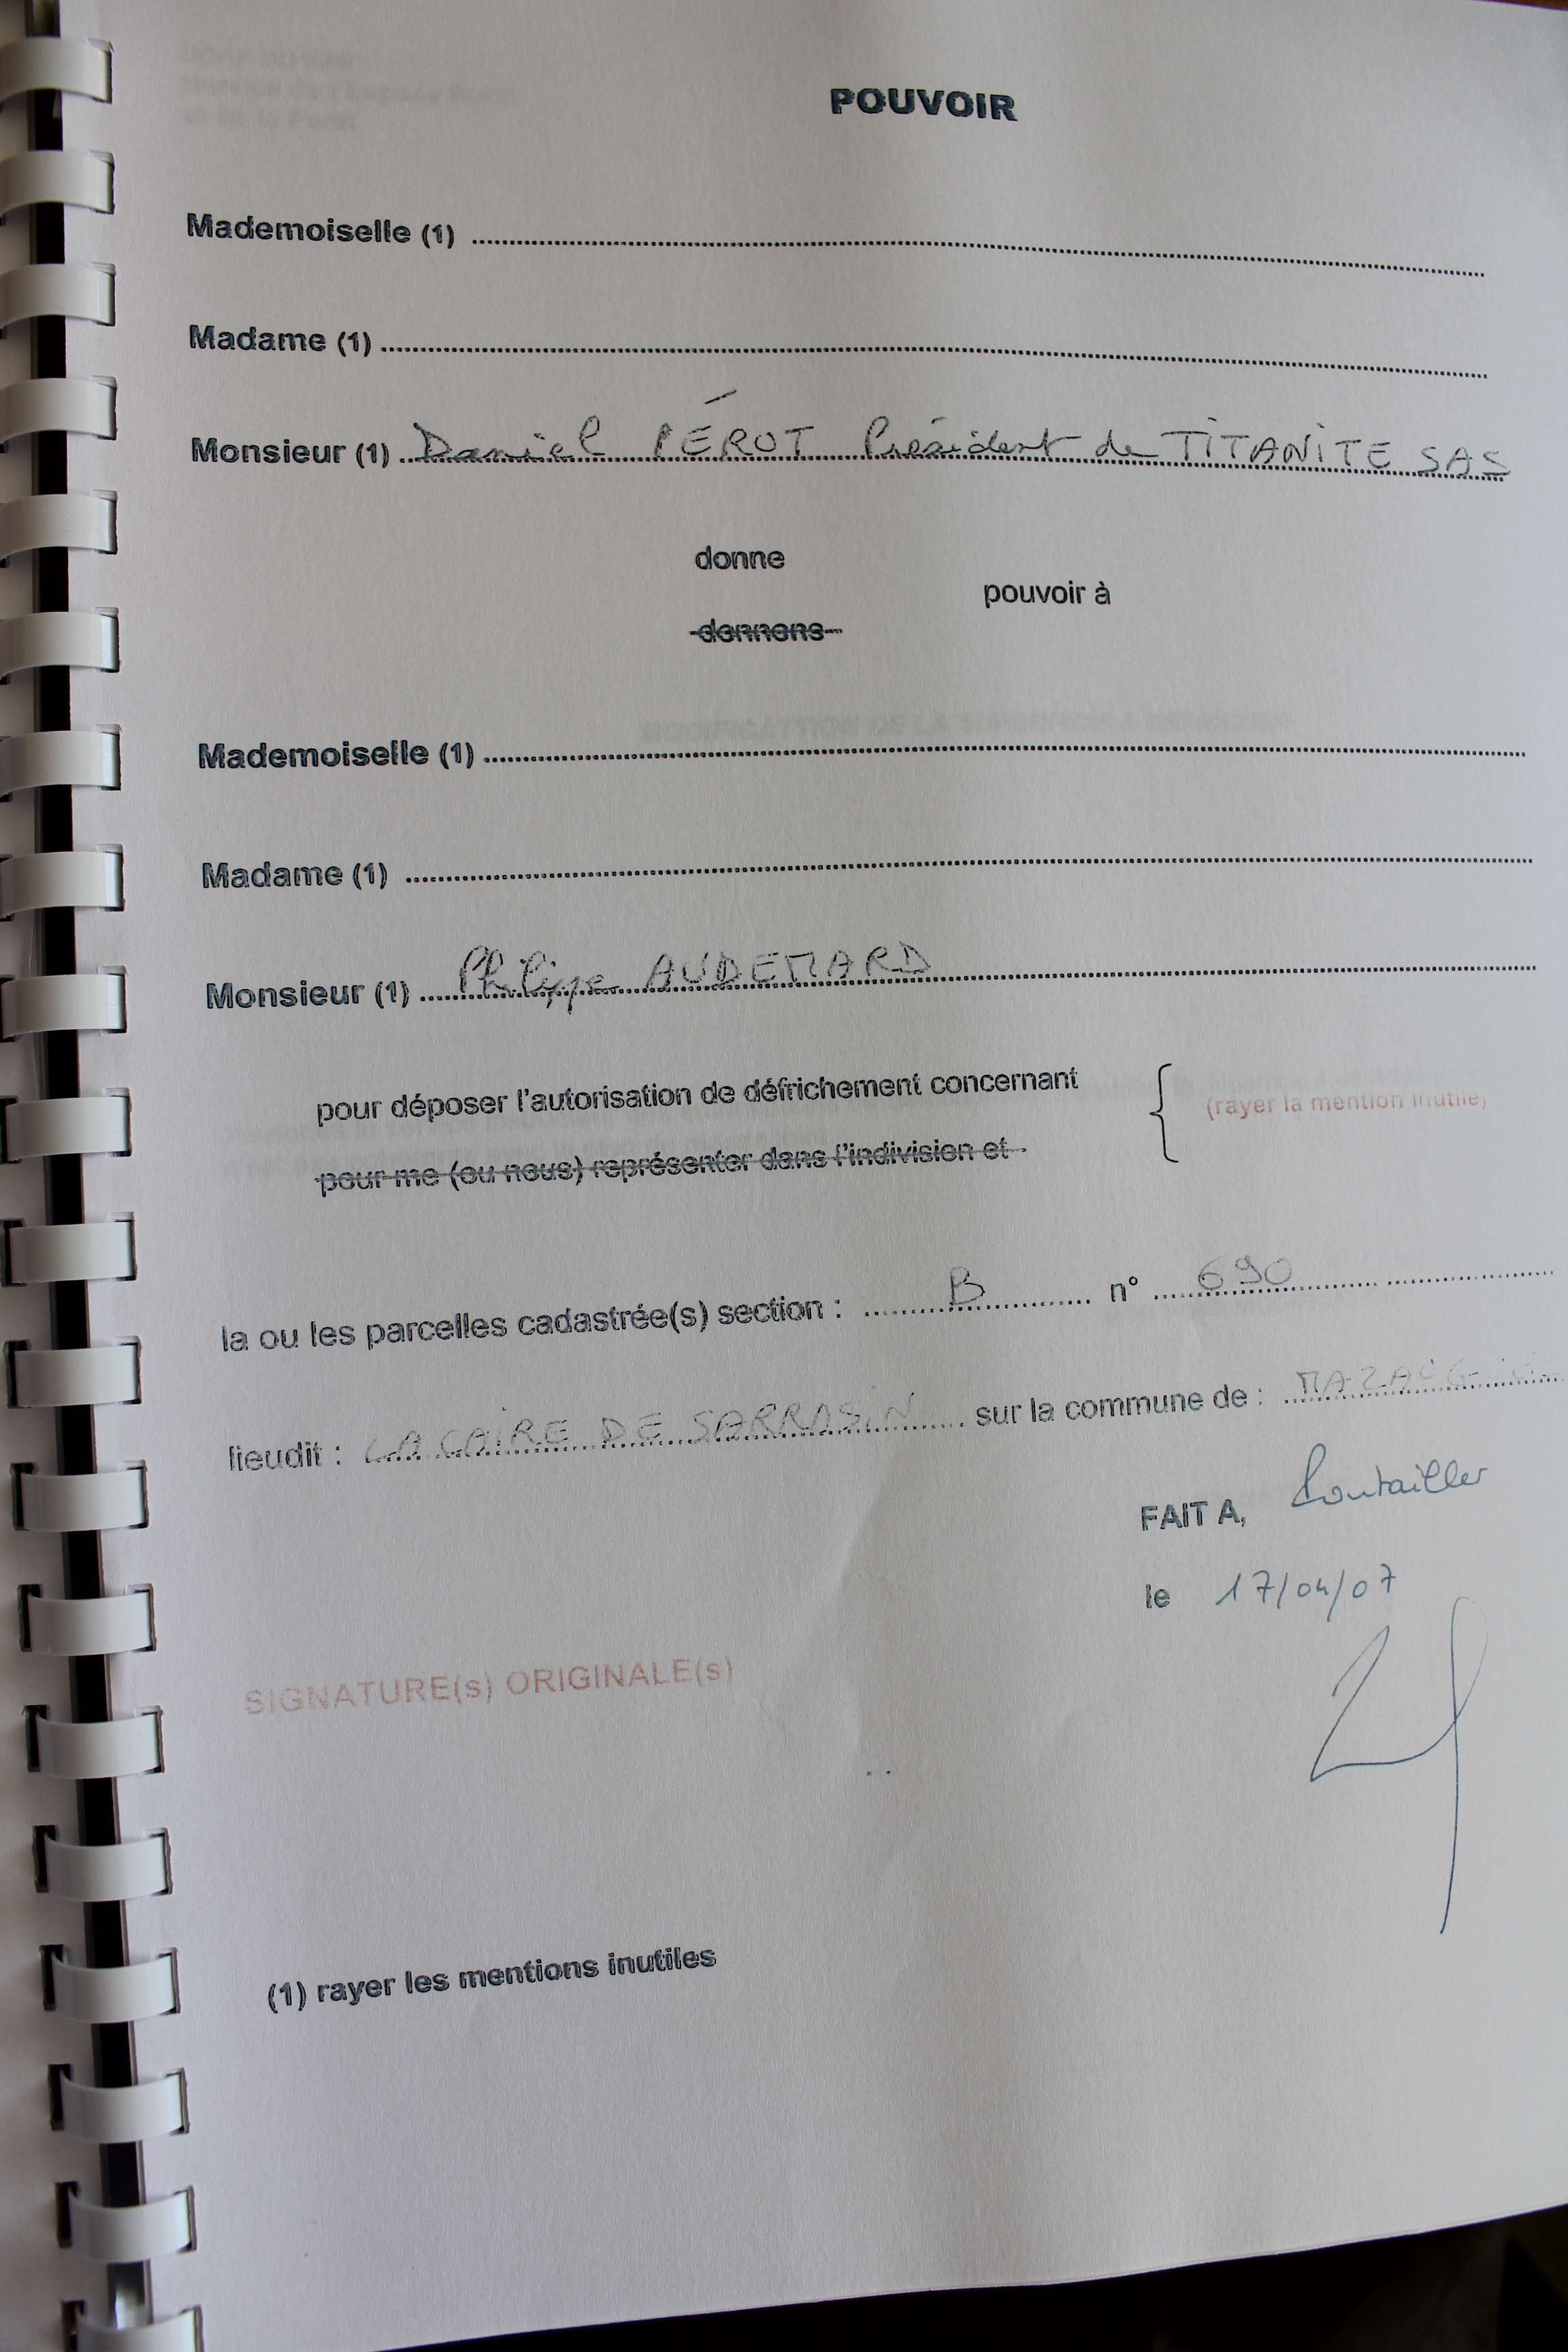 POUVOIR
Mademoiselle (1)
Madame (1)
Monsieur (1) Daniel PÉROT Président de TITANITE SAS
donne
pouvoir à
donnons
Mademoiselle (1)
Madame (1)
Monsieur (1) Philippe AUDEMARD
pour déposer l'autorisation de défrichement concernant
(rayer la mention inutile)
pour me (ou nous) représenter dans l'indivision et
la ou les parcelles cadastrée(s) section : B n° 690
lieudit : LA CAIRE DE SARRASIN sur la commune de :
FAIT A, Pontailler
le 17/04/07
SIGNATURE(s) ORIGINALE(s)
(1) rayer les mentions inutiles